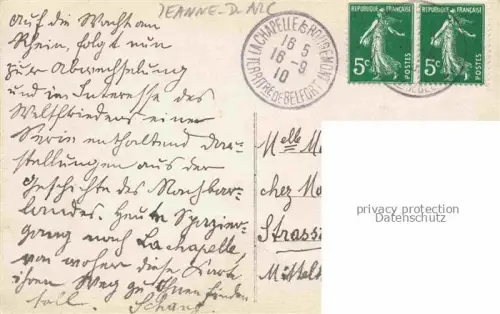 JEANNE-D'ARC
Auf die Wacht am
Rhein, folgt nun
zur Abwechselung
und im Interesse des
Weltfriedens einer
Serie enthaltend Dar-
stellungen aus der
Geschichte des Nachbar-
landes. Heute Spazier-
gang nach Lachapelle,
von woher diese Karte
ihren Weg zu Ihnen finden
soll. Schanz.
LA CHAPELLE-S-ROUGEMONT
16 5
16-9
10
TERRIT RE DE BELFORT
REPUBLIQUE FRANÇAISE
5c
POSTES
REPUBLIQUE FRANÇAISE
5c
POSTES
Melle
chez
privacy protection
Datenschutz